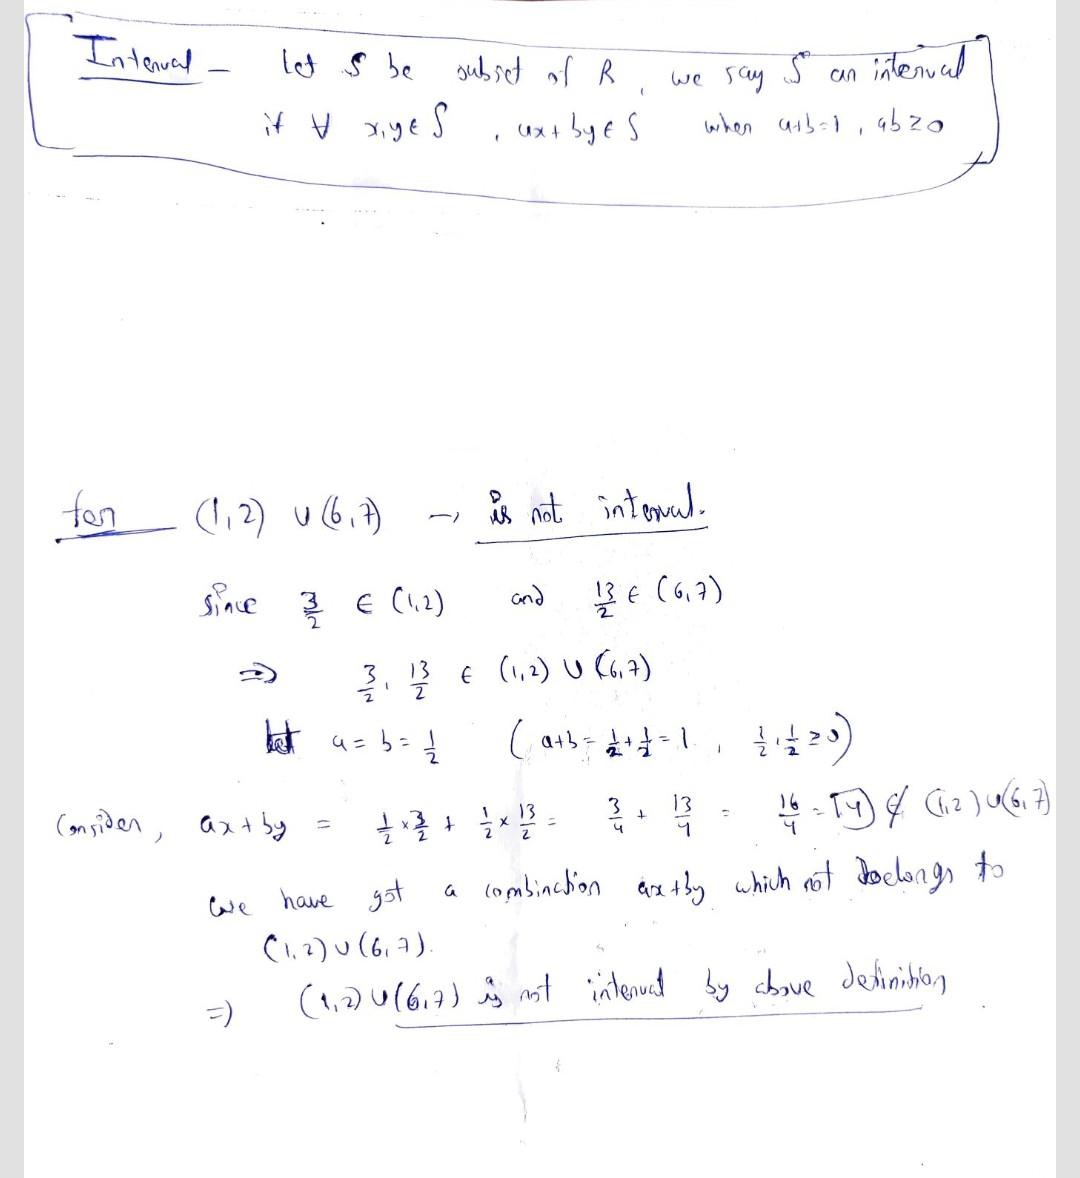 Interval - Let S be subset of R, we say S an interval
if ∀ x,y ∈ S, ax + by ∈ S when a+b=1, ab ≥ 0
for (1,2) ∪ (6,7) → is not interval.
since 3/2 ∈ (1,2) and 13/2 ∈ (6,7)
⇒ 3/2, 13/2 ∈ (1,2) ∪ (6,7)
let a = b = 1/2 ( a+b = 1/2 + 1/2 = 1, 1/2, 1/2 ≥ 0)
Consider, ax + by = 1/2 × 3/2 + 1/2 × 13/2 = 3/4 + 13/4 = 16/4 = 4 ∉ (1,2) ∪ (6,7)
we have got a combination ax + by which not belongs to
(1,2) ∪ (6,7).
⇒ (1,2) ∪ (6,7) is not interval by above definition